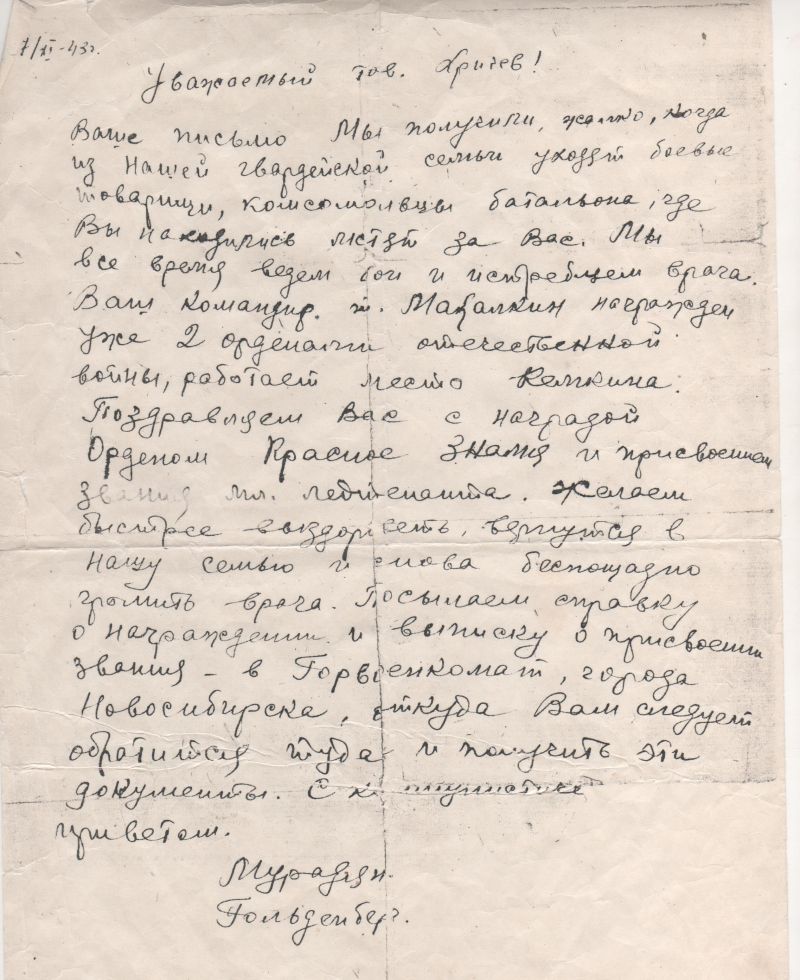 7/XI-43г.
Уважаемый тов. Хричев!
Ваше письмо Мы получили, жалко, когда
из нашей гвардейской семьи уходят боевые
товарищи, комсомольцы батальона, где
Вы находились мстят за Вас. Мы
все время ведем бои и истребляем врага.
Ваш командир т. награжден
уже 2 орденами отечественной
войны, работает место
Поздравляем Вас с наградой
Орденом Красное Знамя и присвоением
звания мл. лейтенанта. Желаем
быстрее выздороветь, вернутся в
нашу семью и снова беспощадно
громить врага. Посылаем справку
о награждении и выписку о присвоении
звания – в Горвоенкомат, города
Новосибирска, откуда Вам следует
обратится туда и получить эти
документы. С
приветом.
Мурадян.
Гольденберг.